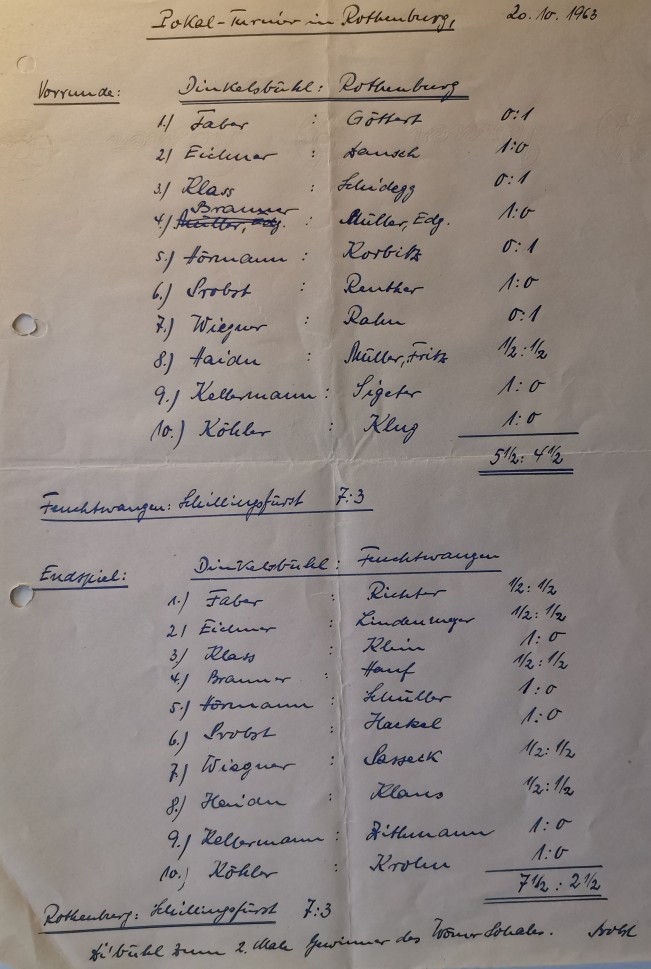 Pokal-Turnier in Rothenburg, 20.10.1963
Vorrunde: Dinkelsbühl : Rothenburg
1.) Faber : Göttert 0:1
2) Eichner : Hansch 1:0
3.) Klass : Scheidegg 0:1
4.) Branner : Müller, Edg. 1:0
5.) Hörmann : Korbitz 0:1
6.) Probst : Renther 1:0
7.) Wiegner : Rahn 0:1
8.) Haidn : Müller, Fritz 1/2:1/2
9.) Kellermann : Sigeter 1:0
10.) Köhler : Klug 1:0
5 1/2 : 4 1/2
Feuchtwangen : Schillingsfürst 7:3
Endspiel: Dinkelsbühl : Feuchtwangen
1.) Faber : Richter 1/2:1/2
2) Eichner : Lindenmeyer 1/2:1/2
3.) Klass : Klein 1:0
4.) Branner : Hauf 1/2:1/2
5.) Hörmann : Schüller 1:0
6.) Probst : Hackel 1:0
7.) Wiegner : Sasseck 1/2:1/2
8.) Haidn : Klaus 1/2:1/2
9.) Kellermann : Zithmann 1:0
10.) Köhler : Krohn 1:0
7 1/2 : 2 1/2
Rothenberg : Schillingsfürst 7:3
Di'bühl zum 2. Male Gewinner des Pokales. Probst